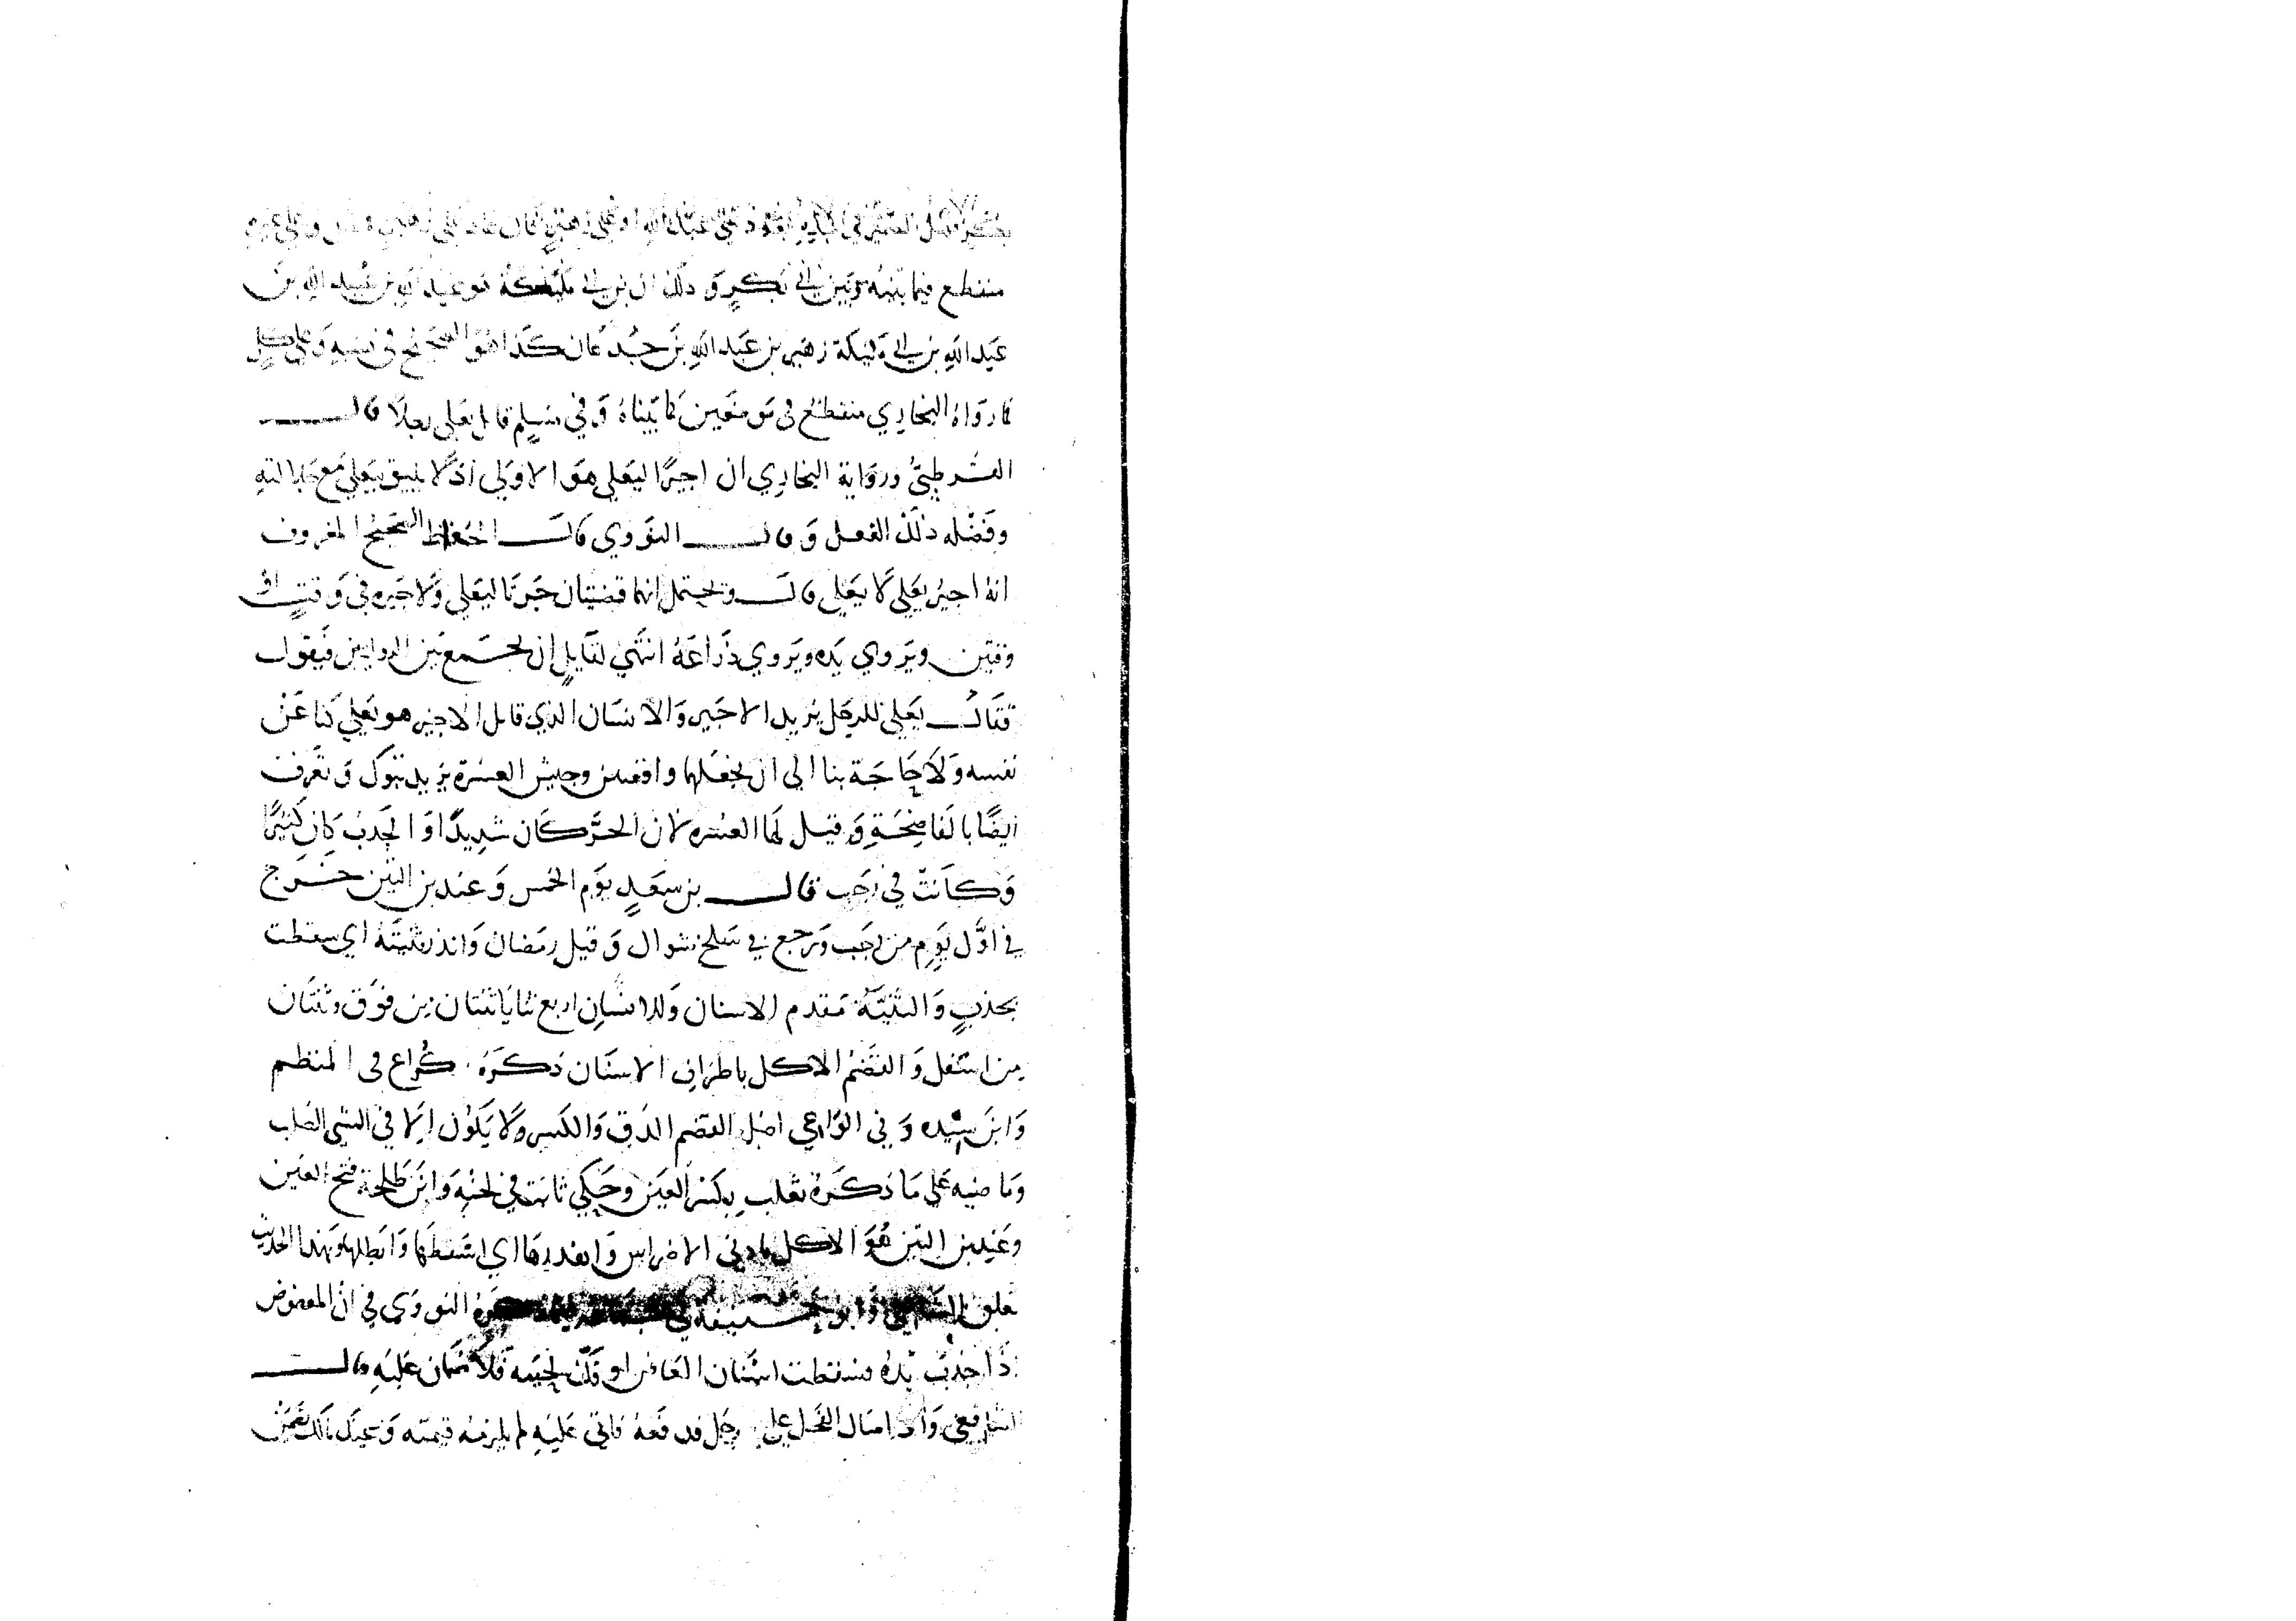 منقطع فيما بينه وبين ابي بكر و ذلك ان بن ابي مليكة هو عبد الله بن عبيد الله بن
عبد الله بن ابي مليكة زهير بن عبد الله بن جدعان كذا هو الصحيح في نسبه وعلى كل
ما رواه البخاري منقطع في موضعين كما بيناه و في مسلم قاتل يعلى رجلا قال
القرطبي ورواية البخاري ان اجيرا ليعلى هو الاولى اذ لا يليق بيعلى مع جلالته
وفضله ذلك الفعل و قال النووي قال الحفاظ الصحيح المعروف
انه اجير يعلى لا يعلى قال ويحتمل انهما قضيتان جرتا ليعلى ولاجيره في وقت او
وقتين ويروي يده ويروي ذراعه انتهى لقايل ان يجمع بين الروايتين فيقول
فقال يعلى للرجل يريد الاجير والانسان الذي قاتل الاجير هو يعلى كنا عن
نفسه ولا حاجة بنا الى ان يجعلهما واقعتين وجيش العسرة يريد تبوك و تعرف
ايضا بالفاضحة و قيل لها العسرة لان الحر كان شديدا و الجدب كان كثيرا
وكانت في رجب قال بن سعد يوم الخمس و عند بن التين خرج
في اول يوم من رجب ورجع في سلخ شوال و قيل رمضان واندر ثنيته اي سقطت
بجذب والثنية مقدم الاسنان وللانسان اربع ثنايا ثنتان من فوق وثنتان
من اسفل و القضم الاكل باطراف الاسنان ذكره كراع في المنظم
وابن سيده و في الواعي اصل القضم الدق والكسر ولا يكون الا في الشي الصلب
وماضيه على ما ذكره ثعلب بكسر العين وحكي ثابت في لحنه وابن طلحة فتح العين
وعند بن التين هو الاكل بادنى الاضراس و اهدرها اي اسقطها وابطلها وبهذا الحديث
تعلق الشافعي وابو حنيفة في النووي في ان المعضوض
اذا جذب يده فسقطت اسنان العاض او فك لحيه فلا ضمان عليه قال
الشافعي واذا صال الفحل على رجل فدفعه فاتى عليه لم يلزمه قيمته و عند مالك يضمن